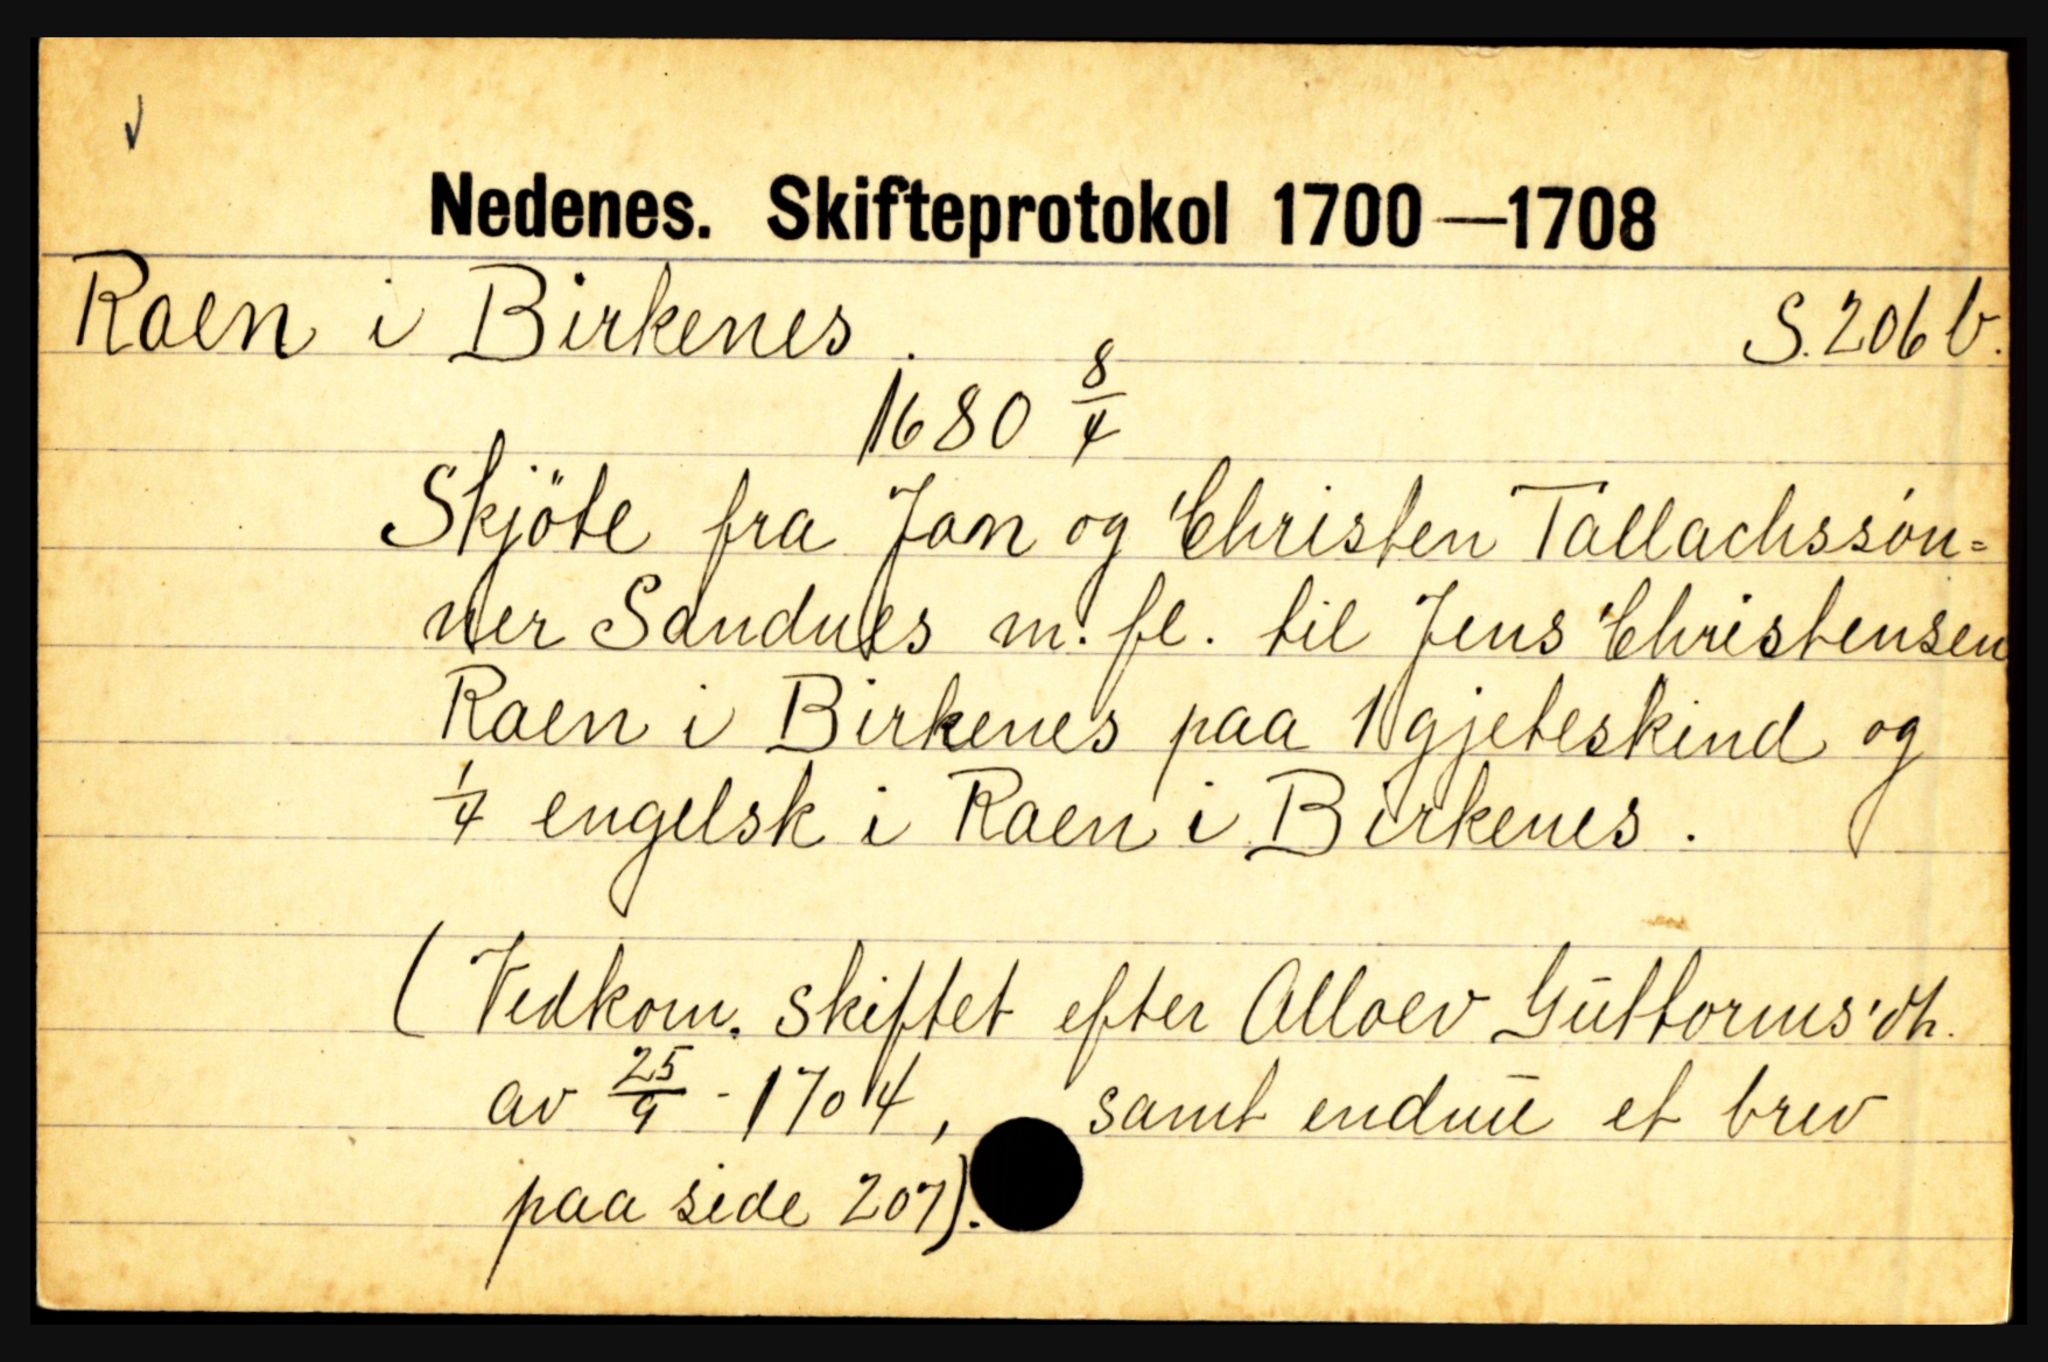 Nedenes. Skifteprotokol 1700—1708
Raen i Birkenes. S. 206 b.
1680 8/4
Skjöte fra Jon og Christen Tallachssøn=
ner Sandnes m. fl. til Jens Christensen
Raen i Birkenes paa 1 gjeteskind og
1/4 engelsk i Raen i Birkenes.
(Vedkom. skiftet efter Alloev Gūttorms'dh.
av 25/9 - 1704, samt endnū et brev
paa side 207).